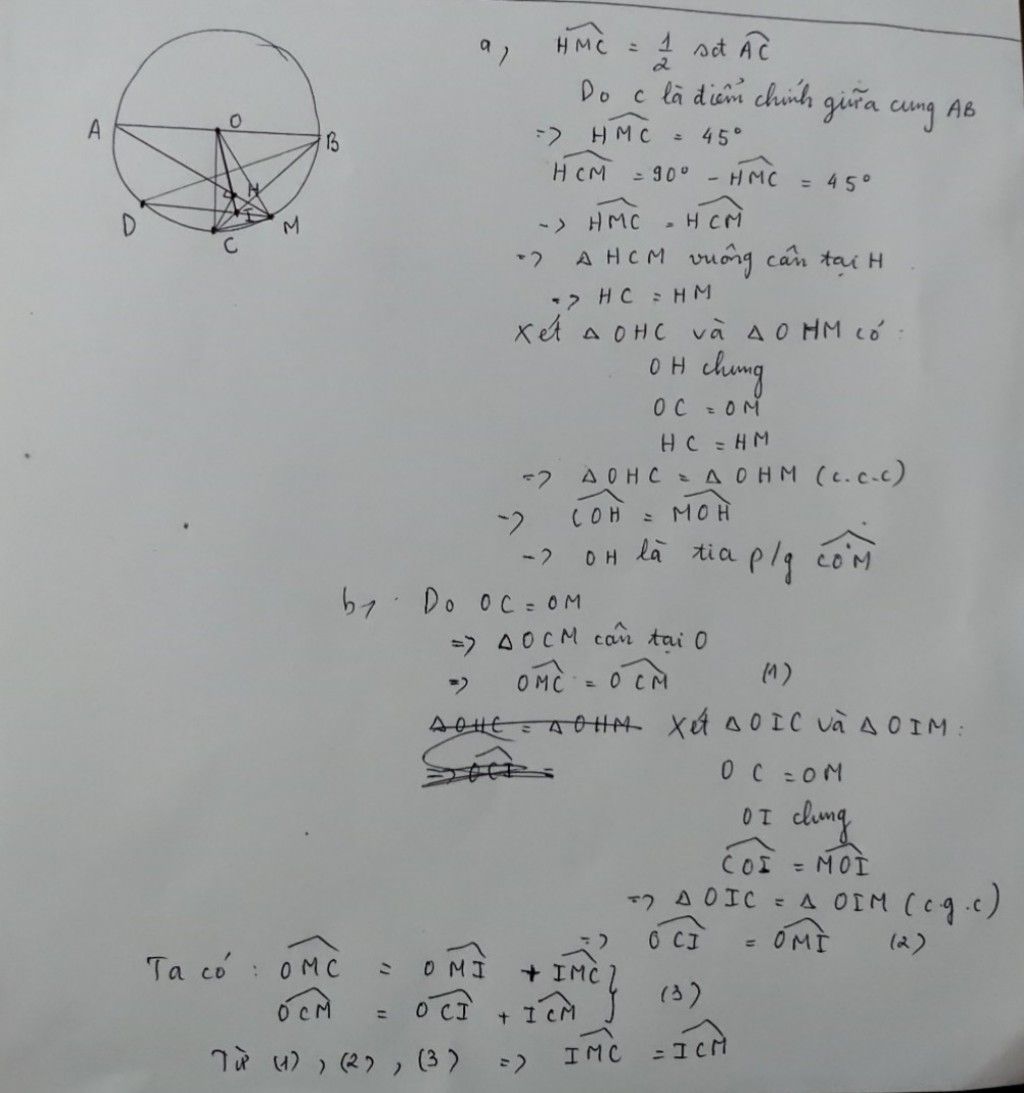 A
O
B
H
I
D
C
M
a, HMC = 1/2 sđt AC
Do C là điểm chính giữa cung AB
=> HMC = 45°
HCM = 90° - HMC = 45°
-> HMC = HCM
=> Δ HCM vuông cân tại H
=> HC = HM
Xét Δ OHC và Δ OHM có:
OH chung
OC = OM
HC = HM
=> Δ OHC = Δ OHM (c.c.c)
-> COH = MOH
-> OH là tia p/g COM
b, Do OC = OM
=> Δ OCM cân tại O
=> OMC = OCM (1)
Δ OHC = Δ OHM Xét Δ OIC và Δ OIM:
=> OCI =
OC = OM
OI chung
COI = MOI
=> Δ OIC = Δ OIM (c.g.c)
=> OCI = OMI (2)
Ta có: OMC = OMI + IMC
OCM = OCI + ICM } (3)
Từ (1), (2), (3) => IMC = ICM